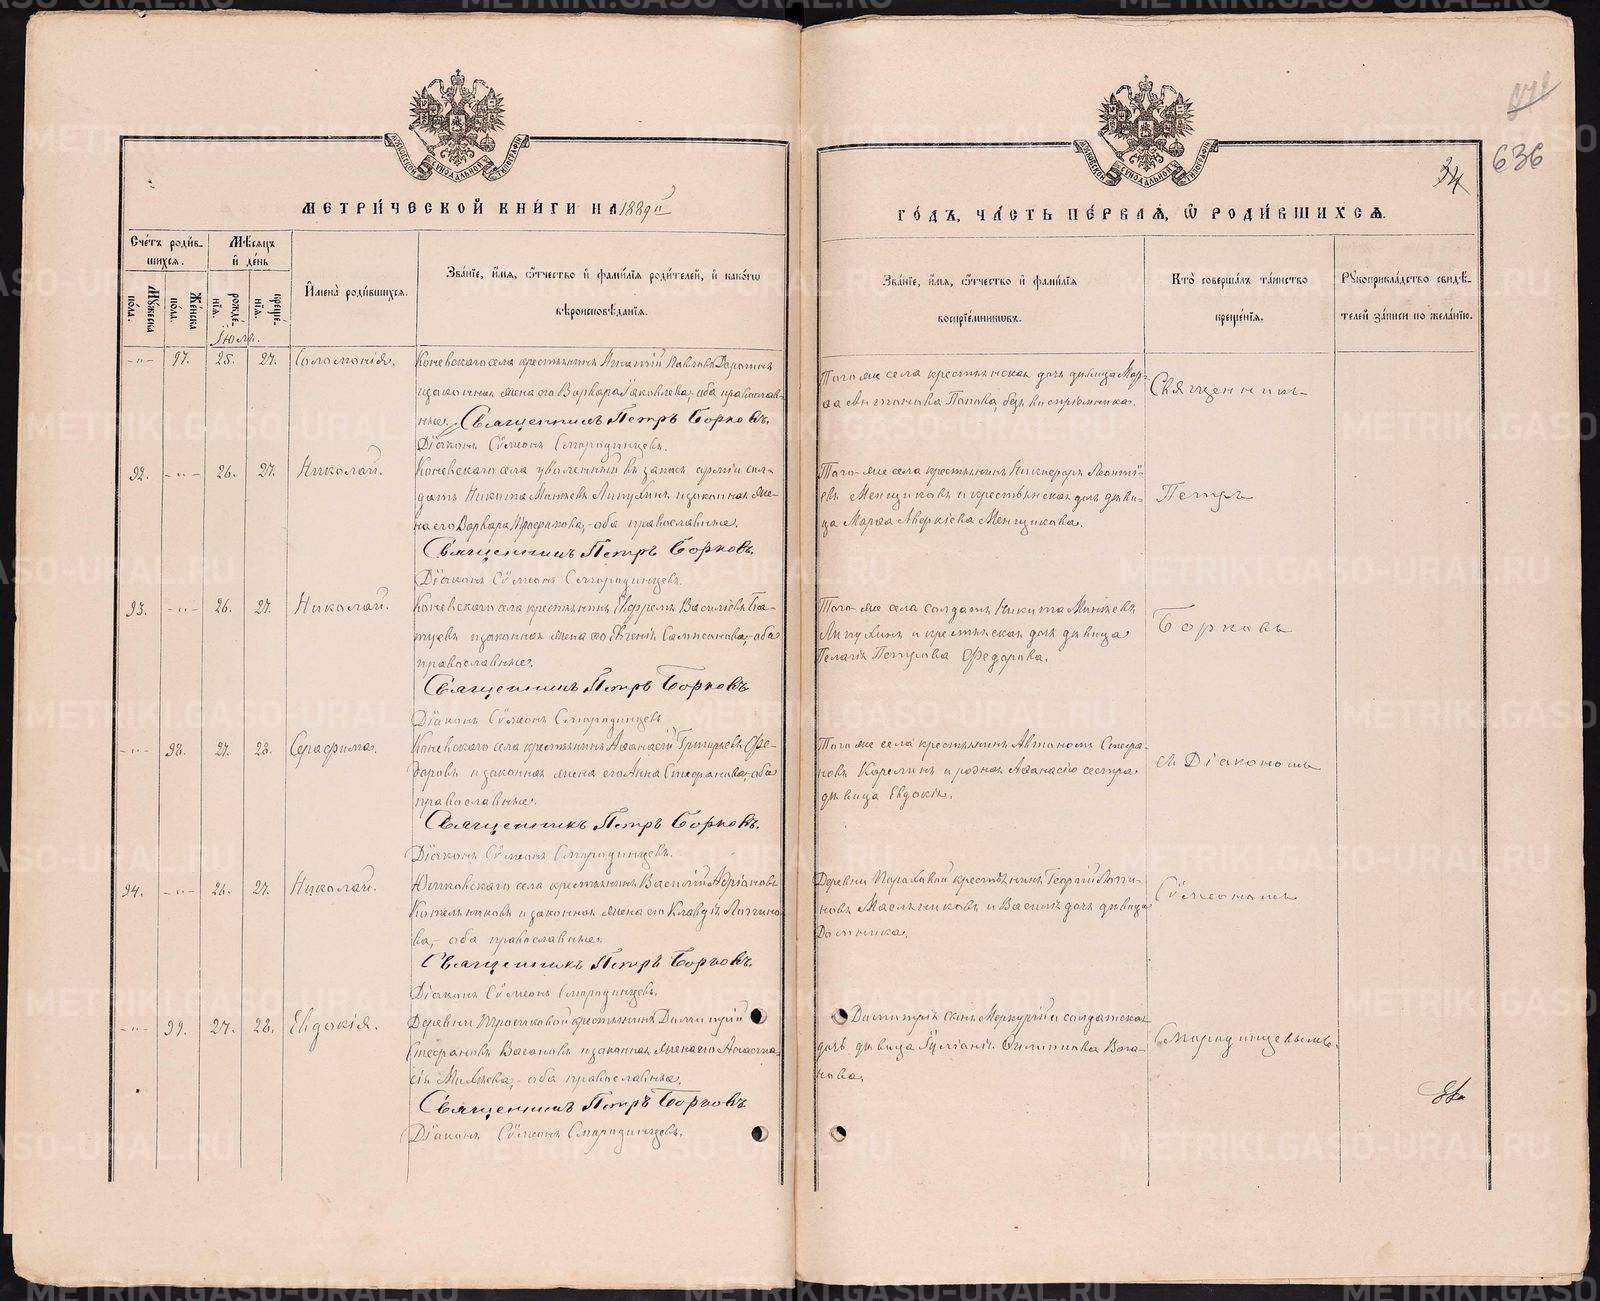 МЕТРИЧЕСКОЙ КНИГИ НА 1889й
Счетъ родившихся.
Мѣсяцъ и день
Имена родившихся.
Званіе, имя, отчество и фамилія родителей, и какого
вѣроисповѣданія.
Мужеска пола.
Женска пола.
рожденія.
крещенія.
Іюль.
-"- 97. 25. 27. Соломонія.
Коневскаго села крестьянинъ Игнатій Павловъ
и законная жена его Варвара Іаковлева, оба православ-
ные. Священникъ Петръ Борковъ.
Діаконъ Сѵмеонъ Смородинцевъ.
92. -"- 26. 27. Николай.
Коневскаго села уволенный въ запасъ арміи сол-
датъ Никита Минѣевъ Липухинъ и законная же-
на его Варвара Трофимова, оба православные.
Священникъ Петръ Борковъ.
Діаконъ Сѵмеонъ Смородинцевъ.
93. -"- 26. 27. Николай.
Коневскаго села крестьянинъ Евфремъ Василіевъ
и законная жена его Евгенія Сампсонова, оба
православные.
Священникъ Петръ Борковъ
Діаконъ Сѵмеонъ Смородинцевъ
-"- 98. 27. 28. Серафима.
Коневскаго села крестьянинъ Аѳанасій Григорьевъ Ѳе-
доровъ и законная жена его Анна Стефанова, оба
православные.
Священникъ Петръ Борковъ.
Діаконъ Сѵмеонъ Смородинцевъ.
94. -"- 26. 27. Николай.
села крестьянинъ Василій Адріановъ
Котельниковъ и законная жена его Клавдія Логгино-
ва, оба православные.
Священникъ Петръ Борковъ.
Діаконъ Сѵмеонъ Смородинцевъ.
-"- 99. 27. 28. Евдокія.
Деревни крестьянинъ Димитрій
Стефановъ Вагановъ и законная жена его Анаста-
сія оба православные.
Священникъ Петръ Борковъ
Діаконъ Сѵмеонъ Смородинцевъ.
34
636
ГОДЪ, ЧАСТЬ ПЕРВАЯ, Ѡ РОДИВШИХСЯ.
Званіе, имя, отчество и фамилія
воспріемниковъ.
Кто совершалъ таинство
крещенія.
Рукоприкладство свидѣ-
телей записи по желанію.
Того же села крестьянская дочь дѣвица Мар-
ѳа Антонова Попова, безъ воспріемника.
Того же села крестьянинъ Никифоръ Леонті-
евъ Менщиковъ и крестьянская дочь дѣви-
ца Марѳа Аверкіева Менщикова.
Того же села солдатъ Никита Минѣевъ
Липухинъ и крестьянская дочь дѣвица
Пелагія Петрова Ѳедорова.
Того же села крестьянинъ Автономъ Стефа-
новъ Карелинъ и родная Аѳанасію сестра
дѣвица Евдокія.
Деревни крестьянинъ Георгій Логги-
новъ Масленниковъ и Василія дочь дѣвица
Домника.
Димитрія сынъ Меркурій и солдатская
дочь дѣвица Іуліанія Филиппова Вага-
нова.
Священникъ
Петръ
Борковъ
съ Діакономъ
Сѵмеономъ
Смородинцевымъ.
METRIKI.GASO-URAL.RU